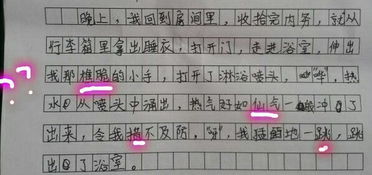 晚上，我回到房间里，收拾完内务，就从
行李箱里拿出睡衣，打开门，走进浴室，伸出
我那樵脆的小手，打开了淋浴喷头，“哗”，热
水从喷头中涌出，热气好如仙气一般冲了
出来，令我措不及防，“呀”，我猛的地一跳，跳
出了浴室。